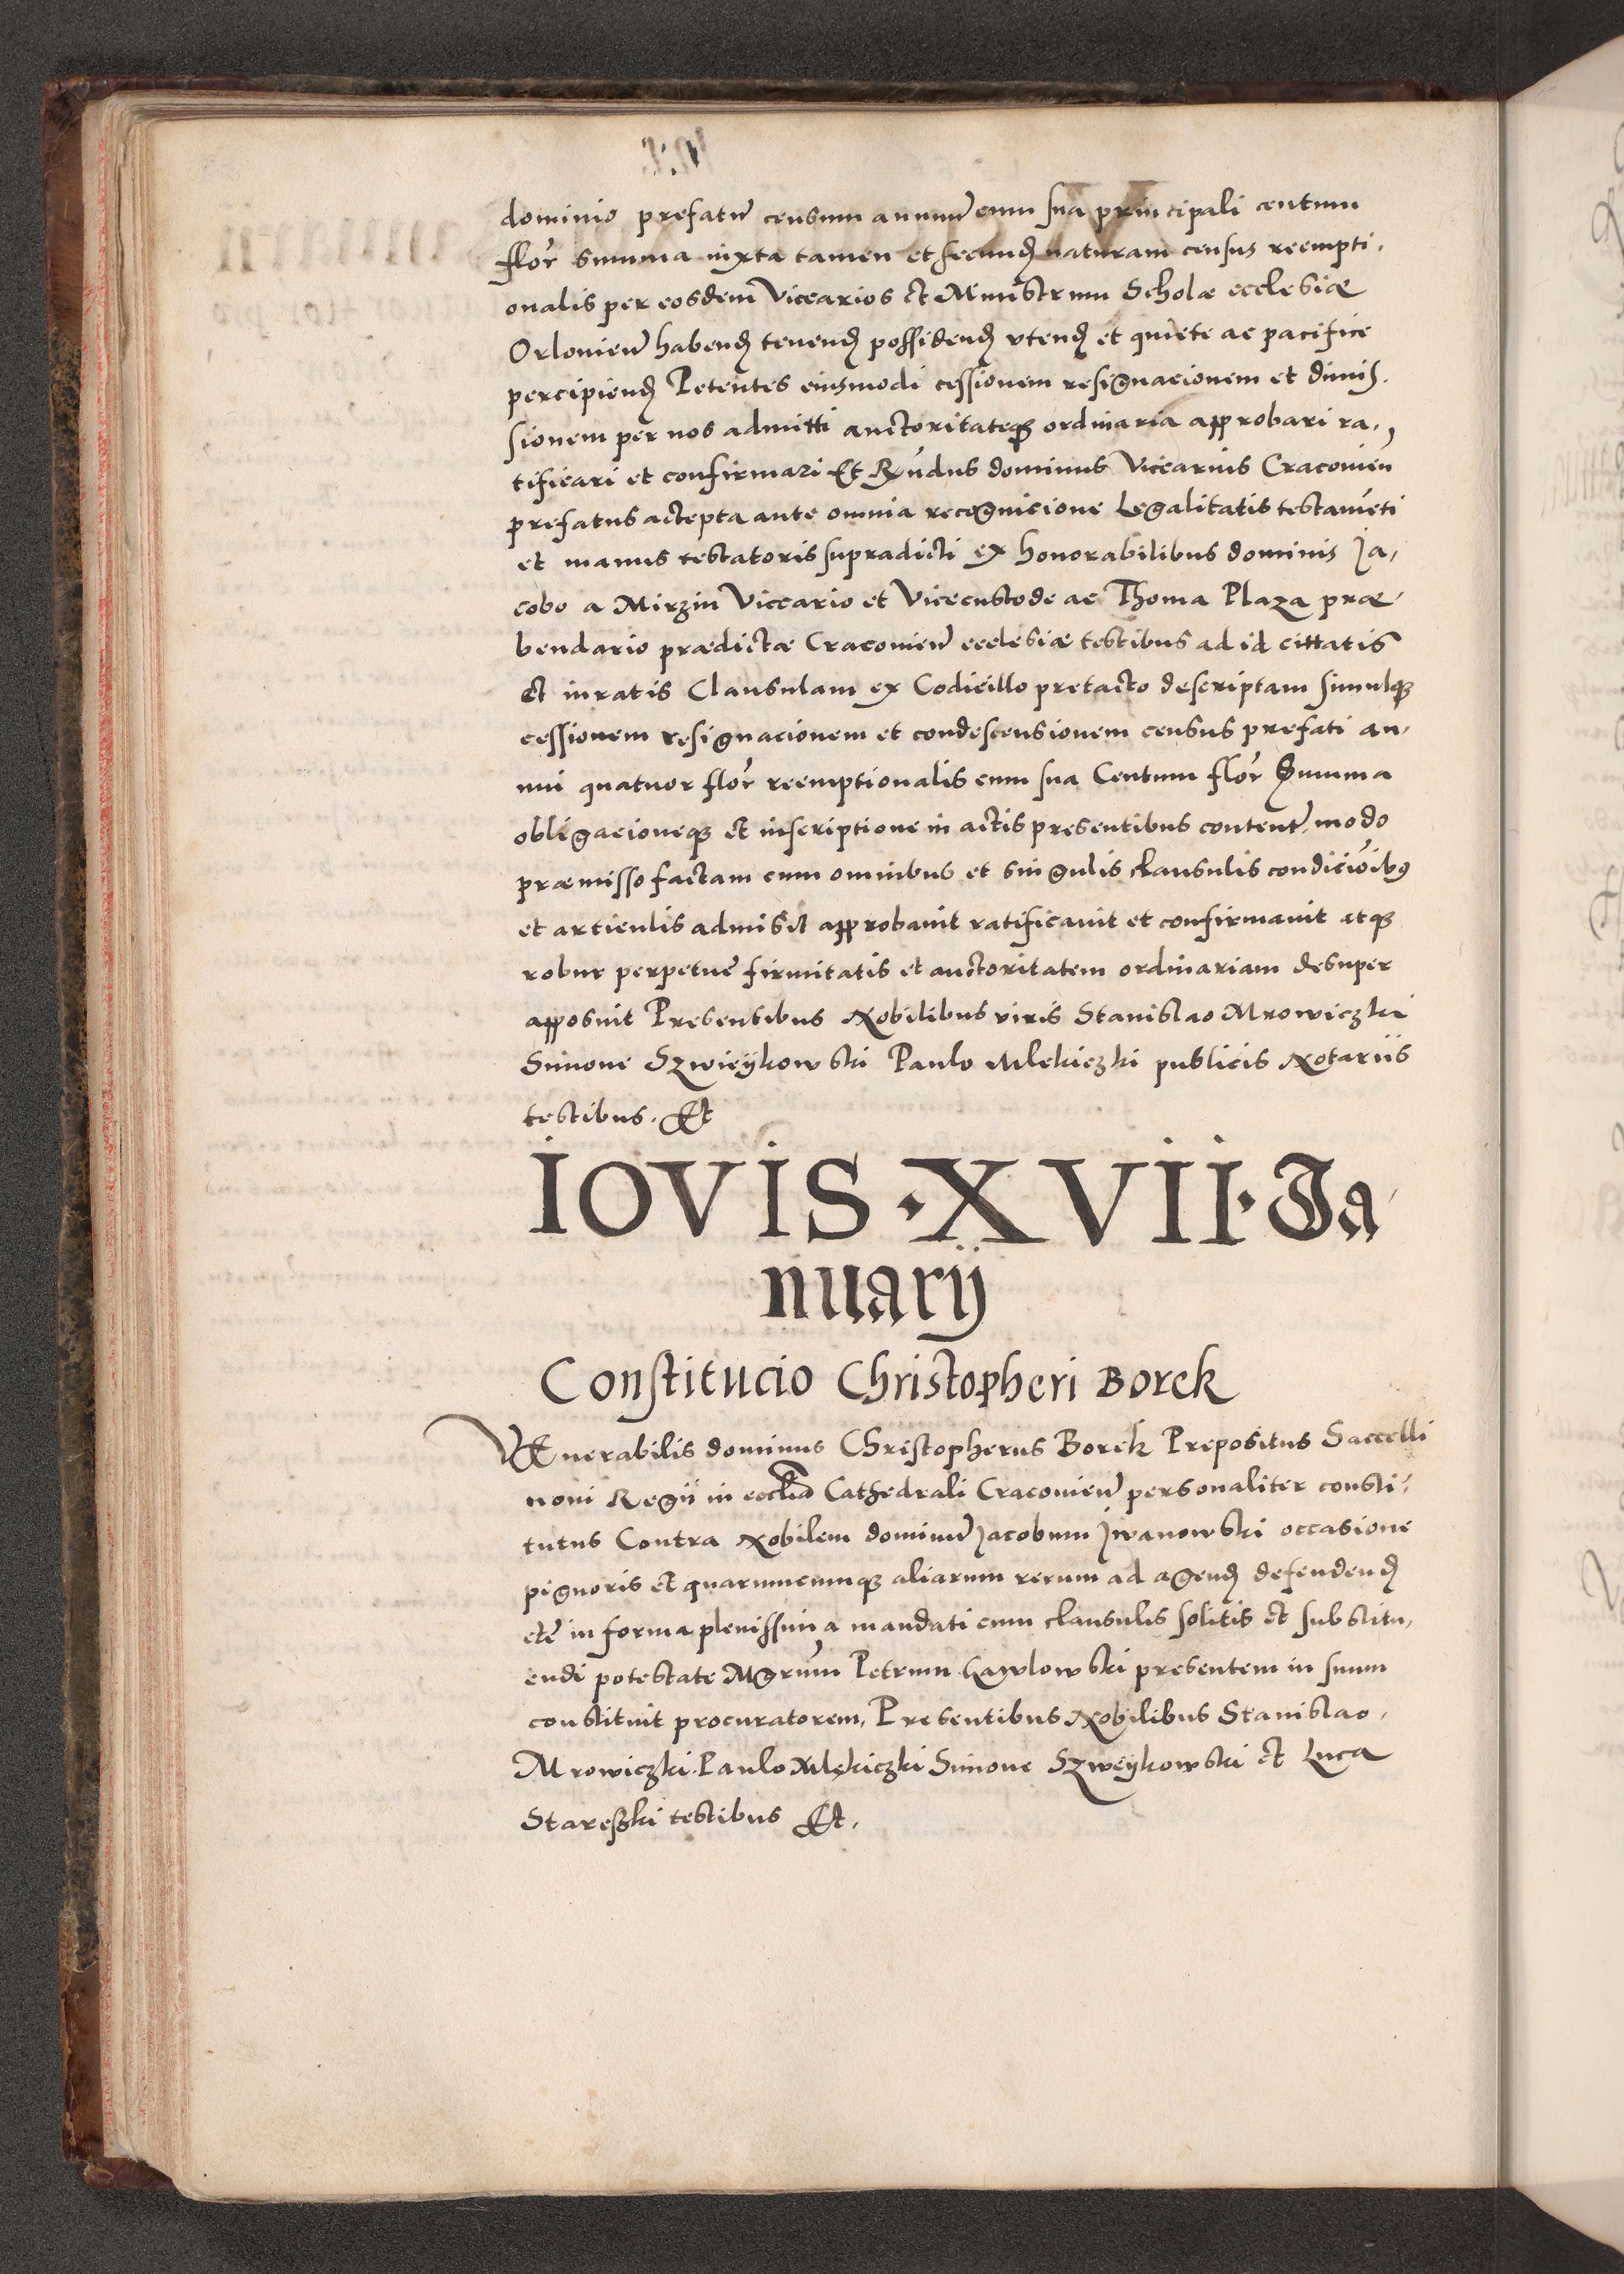 dominio prefatũ censum annuũ cum sua principali centum
flor̃ summa iuxta tamen et secundũ naturam census reempti-
onalis per eosdem Vicearios et Ministrum Scholæ ecclesiæ
Orlouieñ habenđ tenenđ possidenđ vtenđ et quiete ac pacifice
percipienđ Petentes eiusmodi cessionem resignacionem et dimis-
sionem per nos admitti auctoritateq ordinaria approbari ra-
tificari et confirmari Et Rñdus dominus Vicearius Cracouieñ
prefatus accepta ante omnia recognicione Legalitatis testamẽti
et manus testatoris supradicti ex honorabilibus dominis Ja-
cobo a Mirzin Viceario et Vicecustode ac Thoma Plaza præ-
bendario prædictæ Cracouieñ ecclesiæ testibus ad id cittatis
et iuratis Clausulam ex Codicillo pretacto descriptam simulq
cessionem resignacionem et condescensionem census prefati an-
nui quatuor flor̃ reemptionalis cum sua Centum flor̃ Summa
obligacioneq et inscriptione in actis presentibus contentĩ modo
præmisso factam cum omnibus et singulis clausulis condiciõibꝰ
et articulis admisit approbauit ratificauit et confirmauit atq
robur perpetue firmitatis et auctoritatem ordinariam desuper
apposuit Presentibus Nobilibus viris Stanislao Mrowiczki
Simone Szwieÿkowski Paulo Mlekiczki publicis Notariis
testibus. Et
IOVIS · XVII · Ja-
nuarij
Constitucio Christopheri Borek
VEnerabilis dominus Christopherus Borek Prepositus Saccelli
noui Regii in eccliã Cathedrali Cracouieñ personaliter consti-
tutus Contra Nobilem dominũ Jacobum Jwanowski occasione
pignoris et quarumcumq aliarum rerum ad agenđ defendenđ
etc̃ in forma plenissima mandati cum clausulis solitis et substitu-
endi potestate Mgrũm Petrum Gawlowski presentem in suum
constituit procuratorem, Presentibus Nobilibus Stanislao
Mrowiczki Paulo Mlękiczki Simone Szweÿkowski et Luca
Staręszki testibus Et.